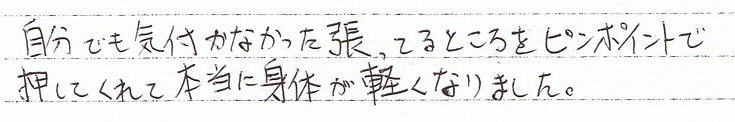 自分でも気付かなかった張ってるところをピンポイントで
押してくれて本当に身体が軽くなりました。